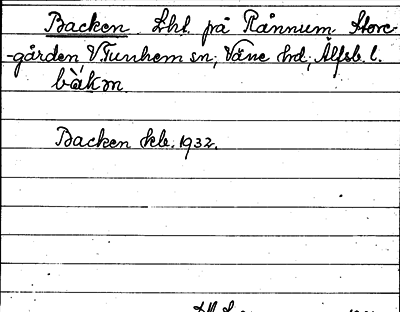 Backen Lht. på Rånnum Stora-
-gården V. Tunhem sn; Väne hd; Älfsb. l.
båkm
Backen kb. 1932.